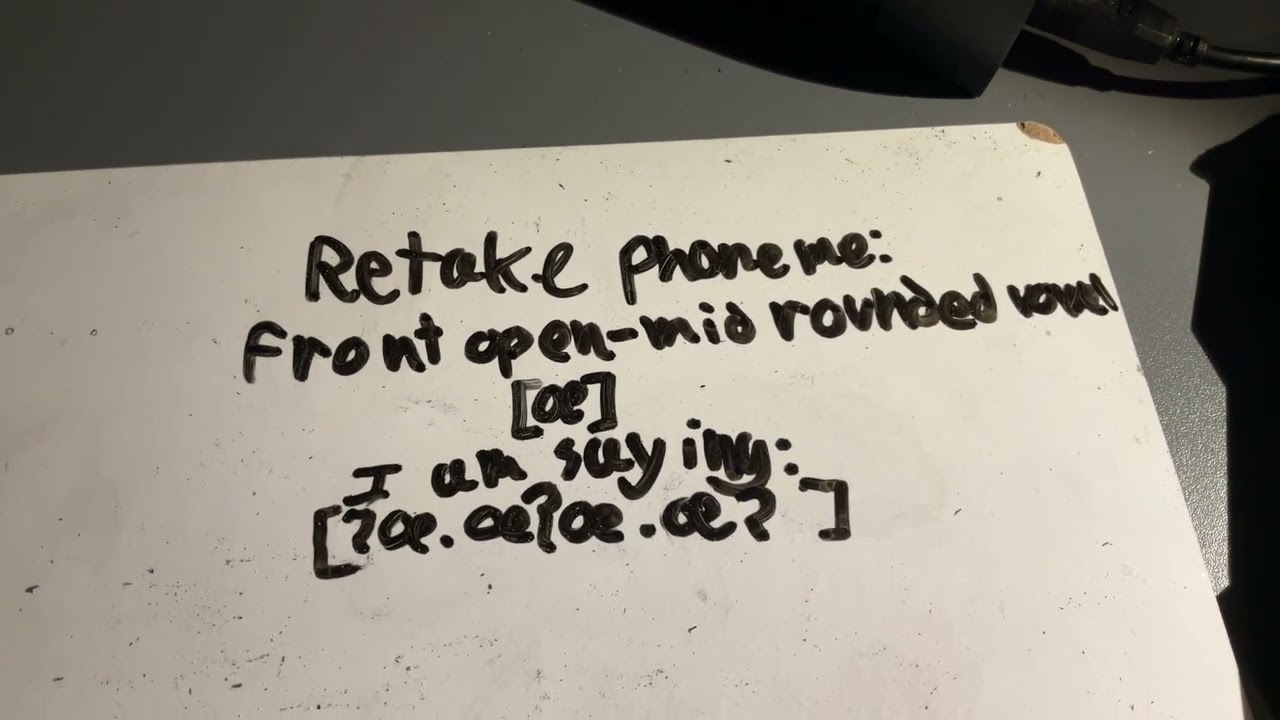 Retake phoneme:
front open-mid rounded vowel
[œ]
I am saying:
[ʔœ.œʔœ.œʔ]